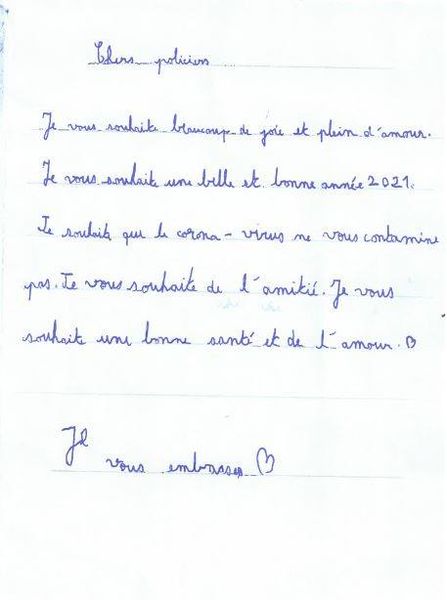 Chers policiers
Je vous souhaite beaucoup de joie et plein d'amour.
Je vous souhaite une belle et bonne année 2021.
Je souhaite que le corona-virus ne vous contamine
pas. Je vous souhaite de l'amitié. Je vous
souhaite une bonne santé et de l'amour. ♡
Je
vous embrasses ♡